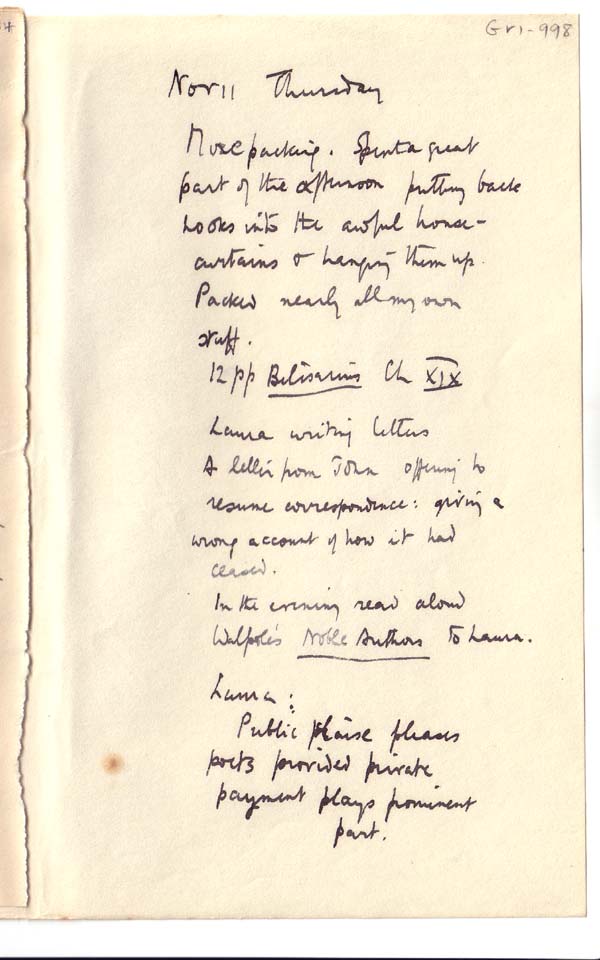 Gr1-998
Nov 11 Thursday
More packing. Spent a great
part of the afternoon putting back
hooks into the awful house-
curtains & hanging them up.
Packed nearly all my own
stuff.
12 pp Belisarius Ch XIX
Laura writing letters
A letter from John offering to
resume correspondence: giving a
wrong account of how it had
ceased.
In the evening read aloud
Walpole's Noble Authors to Laura.
Laura:
Public praise pleases
poets provided private
payment plays prominent
part.